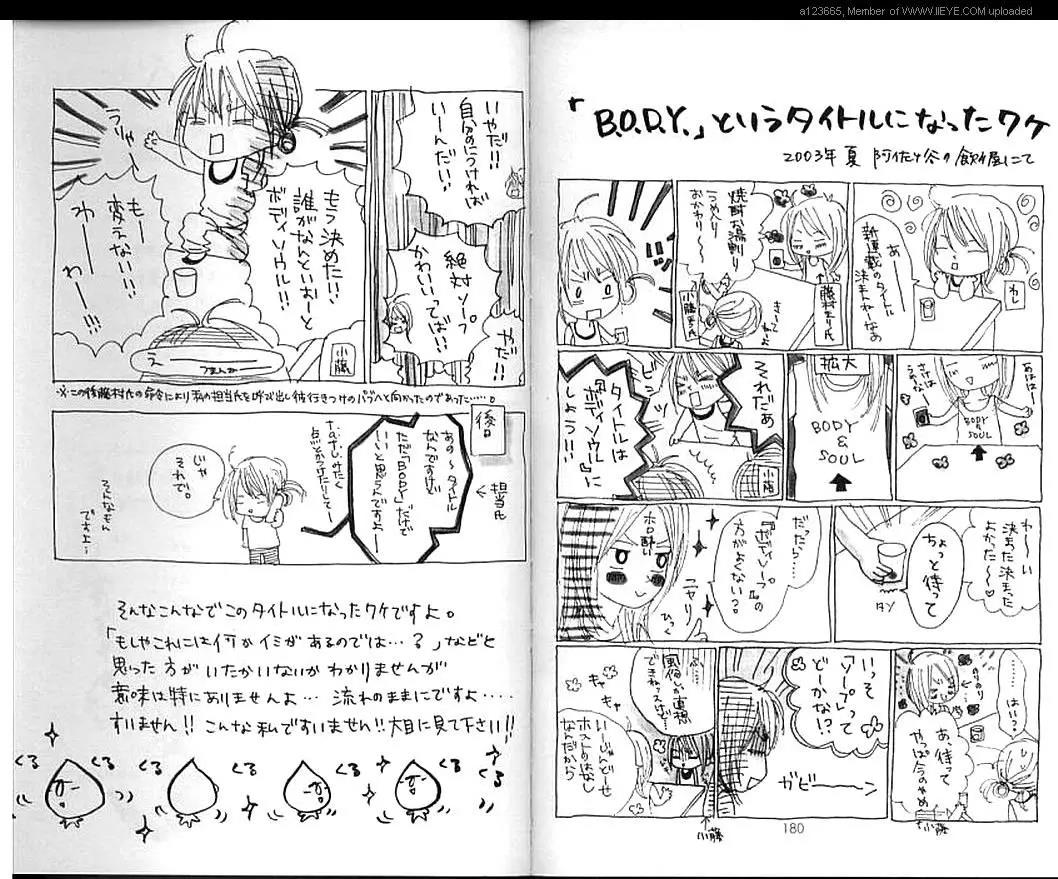 a123665, Member of WWW.IIEYE.COM uploaded
「B.O.D.Y.」というタイトルになったワケ
2003年 夏 阿佐ヶ谷の飲み屋にて
わし
あー
新連載のタイトル
決まんねーなあ
藤村まり氏
焼酎お湯割り
うめ入り
おかわり〜
小藤まき氏
きーてねよ
あはは
さけは
うめぇなぁ
BODY
&
SOUL
拡大
BODY
&
SOUL
それだぁ
ピンッ
小藤
タイトルは
『ボディソウル』に
しよう!!
わーい
決まった決まった
よかった〜
ちょっと待って
だったら…
『ボディソープ』の
方がよくない?
ホロ酔い
ニヤリ
ひっく
……
はい?
のりのり
あ、待って
やっぱ今のやめ
小藤
いっそ
『ソープ』って
どーかな!?
ガビーーーン
小藤
風俗しか連想
できねぇけど…
キャ
キャ
いーじゃんどーせ
ホストのはなし
なんだから
180
いやだ!!
自分のにつければ
いーんだい!
絶対ソープ
かわいいってば!!
やだ!!
もう決めたい!!
誰がなんといおーと
ボディソウル!!
うりゃー
もー
変えないい!!
わーーわー!!!
えー
つまんねー
小藤
※この後藤村氏の命令により私の担当氏を呼び出し彼行きつけのバーへと向かったのであった……。
後日
←担当氏
あの〜タイトル
なんですけど
ただ「BODY」だけで
いいと思うんですよー
点とかつけたりしてー
じゃ
それで。
そんなもん
ですよ…
そんなこんなでこのタイトルになったワケですよ。
「もしやこれには何かイミがあるのでは…?」などと
思った方がいたかいないかわかりませんが
意味は特にありませんよ… 流れのままにですよ‥‥
すいません!! こんな私ですいません!! 大目に見て下さい!!
くる くる くる くる くる くる くる